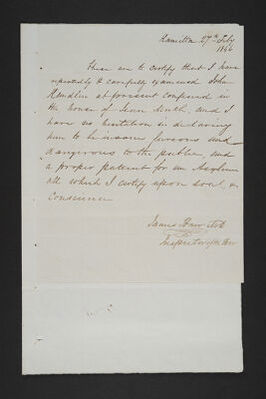 Hamilton 27th July
1846
These are to certify that I have
repeatedly & carefully examined John
at present confined in
the house of and I
have no hesitation in declaring
him to be insane furious and
dangerous to the public, and
a proper patient for an Asylum
all which I certify upon soul &
Conscience
James MD